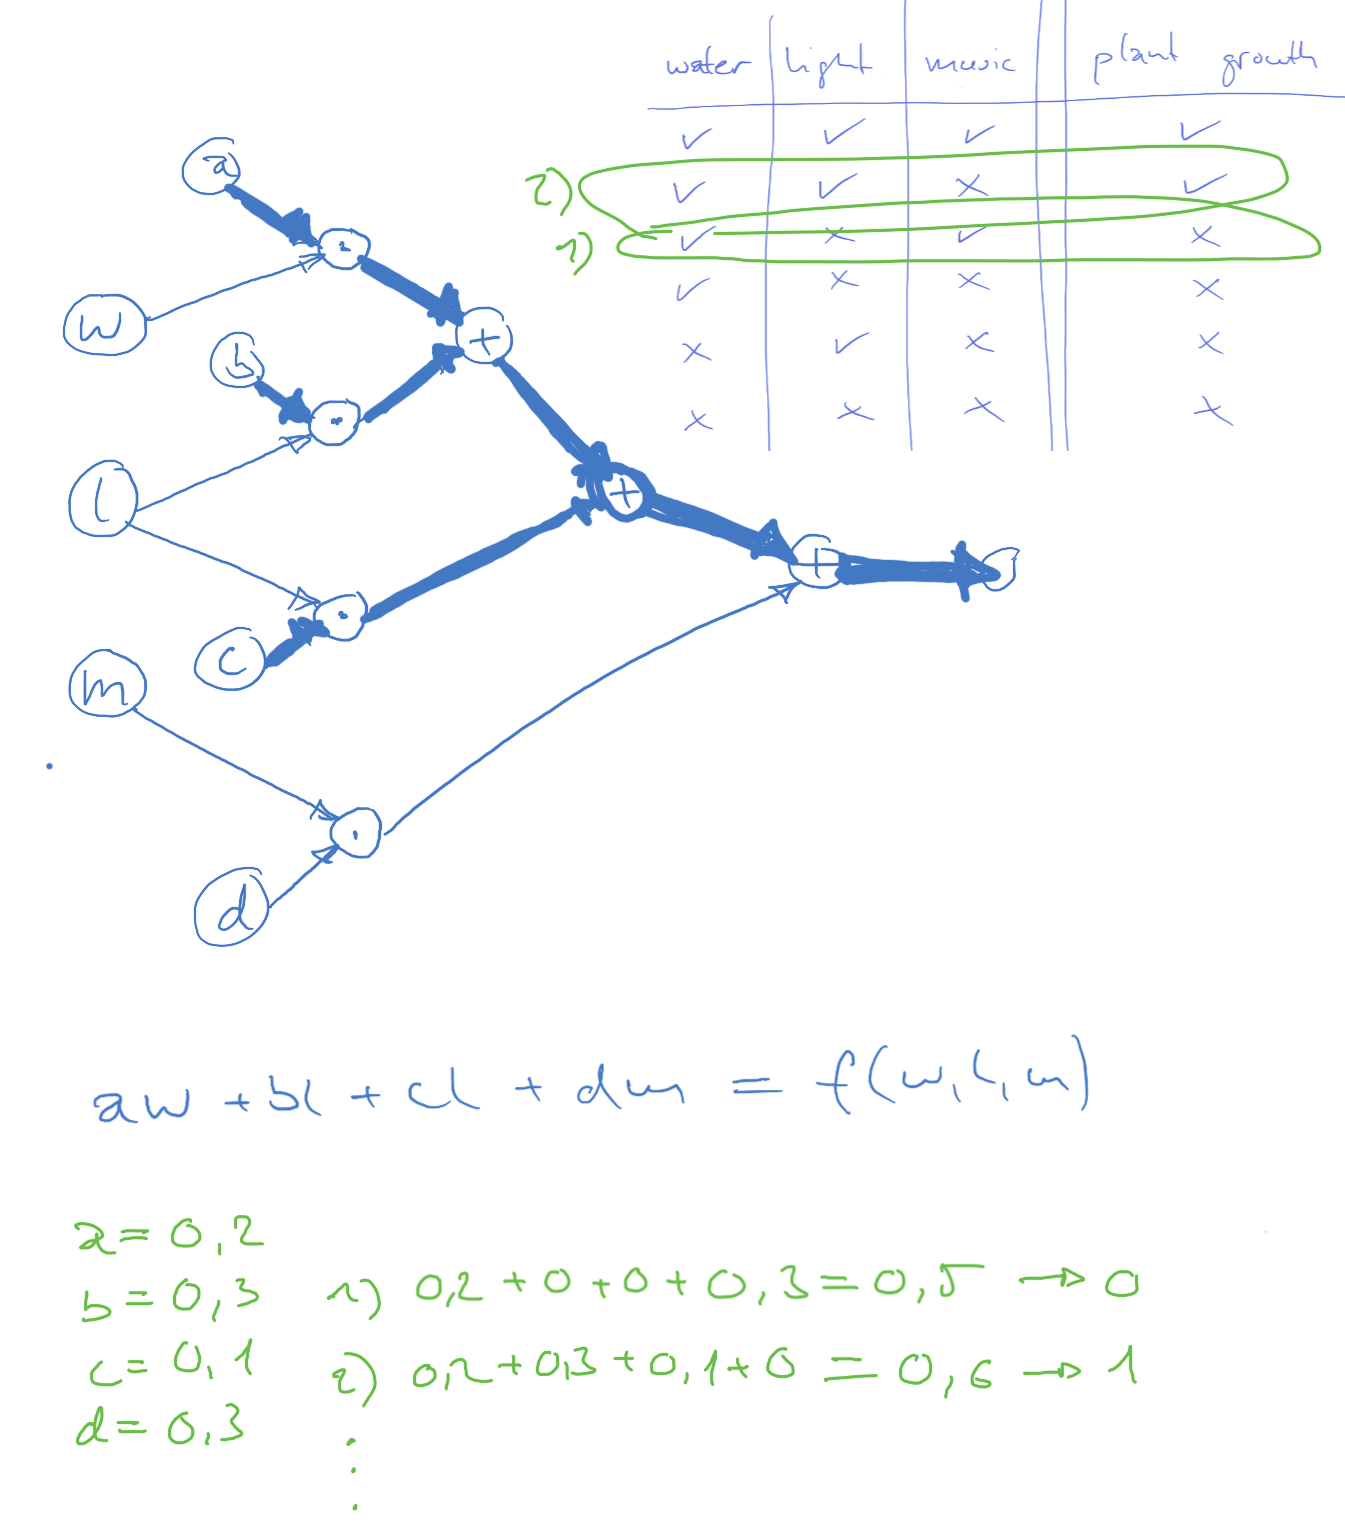 water light music plant growth
✓ ✓ ✓ ✓
2) ✓ ✓ × ✓
1) ✓ × ✓ ×
✓ × × ×
× ✓ × ×
× × × ×
a
w
b
l
c
m
d
·
+
·
+
+
·
·
aw + bl + cl + dm = f(w, l, m)
a = 0,2
b = 0,3
c = 0,1
d = 0,3
1) 0,2 + 0 + 0 + 0,3 = 0,5 → 0
2) 0,2 + 0,3 + 0,1 + 0 = 0,6 → 1
⋮